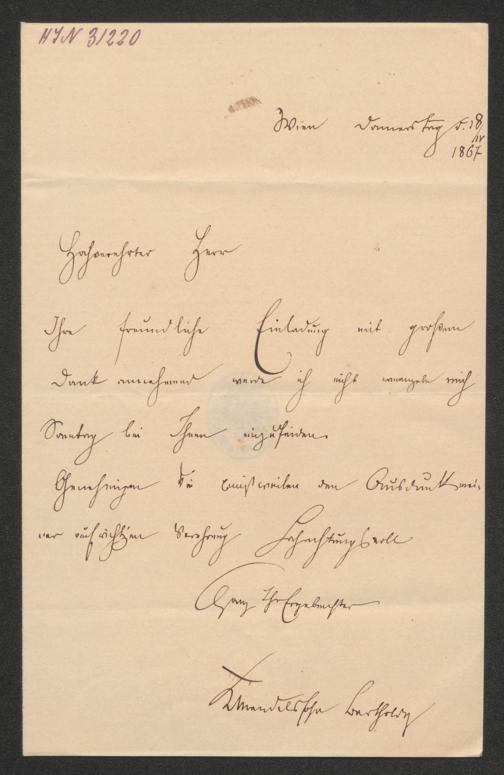 HIN 31220
Wien Donnerstag d. 18/IV
1867
Hochverehrter Herr
Ihre freundliche Einladung mit großem
Dank annehmend werde ich nicht ermangeln mich
Sonntag bei Ihnen einzufinden.
Genehmigen Sie einstweilen den Ausdruck mei-
ner aufrichtigen Verehrung Hochachtungsvoll
Ganz Ihr Ergebenster
Mendelssohn Bartholdy